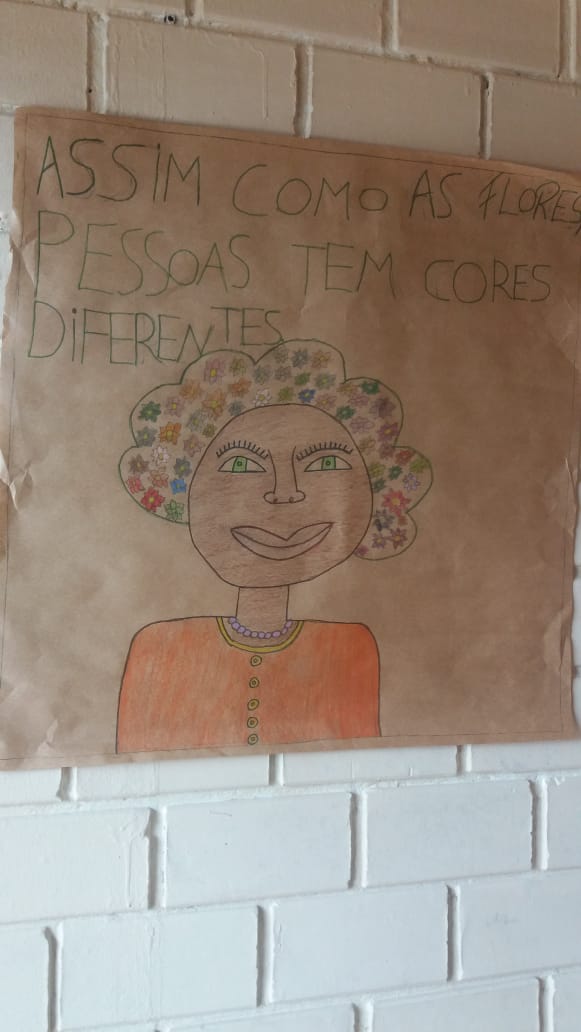 ASSIM COMO AS FLORES,
PESSOAS TEM CORES
DIFERENTES